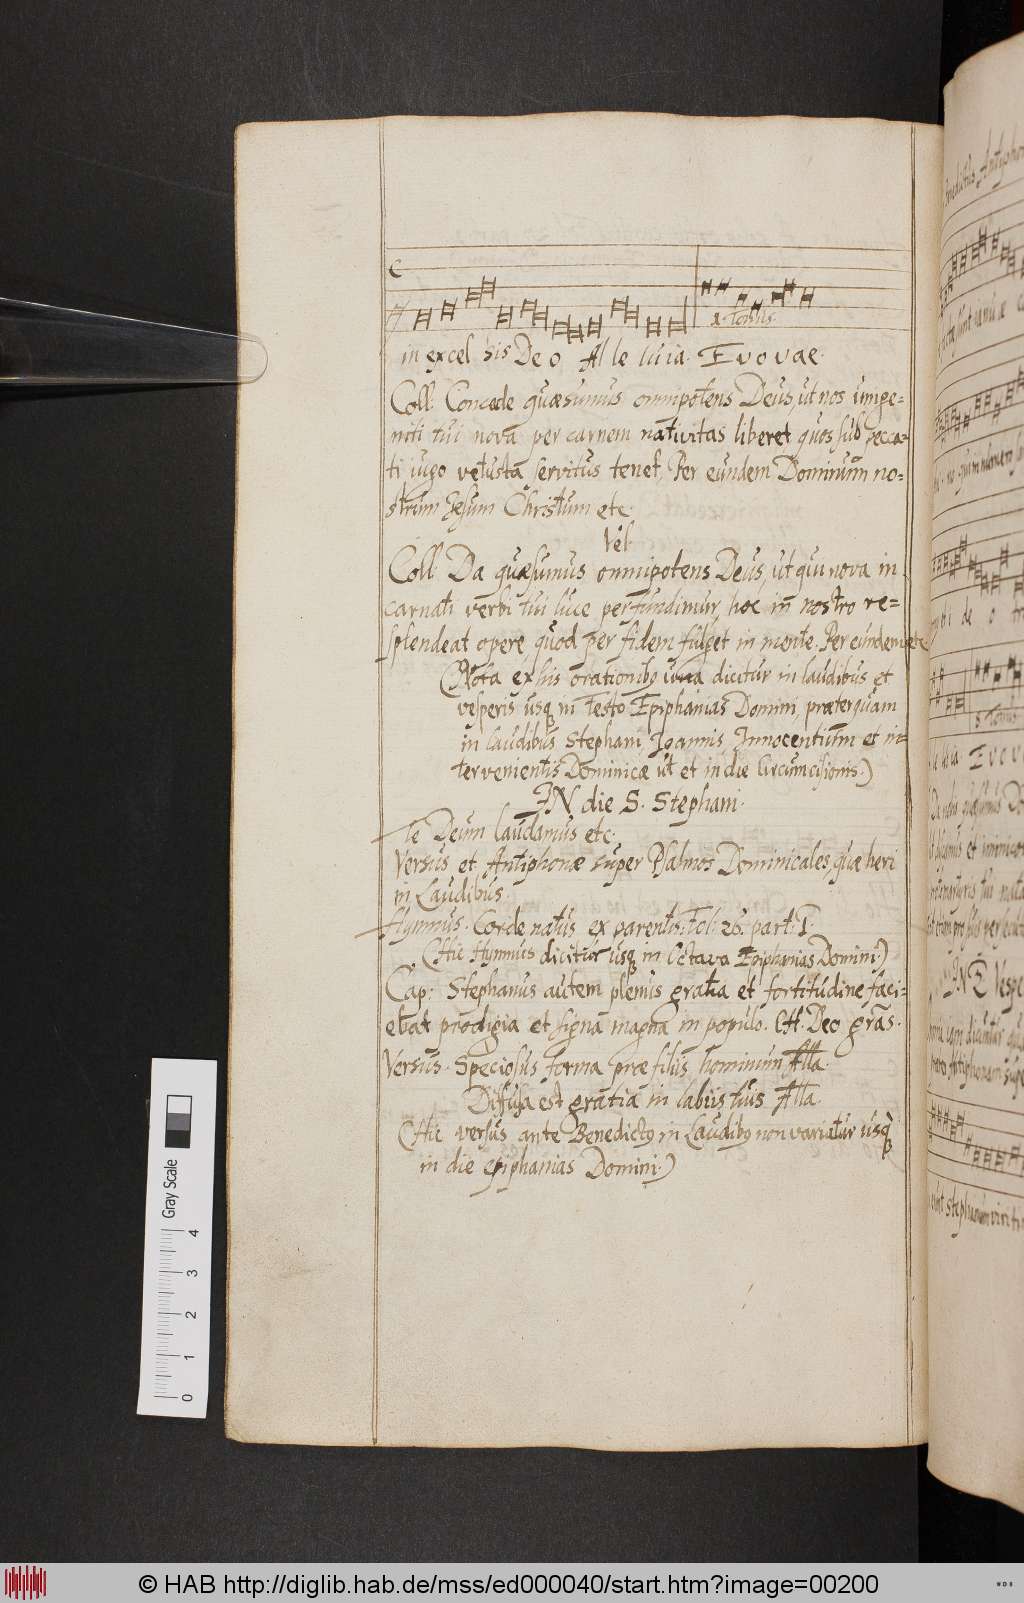 C
in excel sis De o Al le lu ia. Evovae.
Tonus.
Coll: Concede quæsumus omnipotens Deus, ut nos unige=
niti tui nova per carnem nativitas liberet quos sub pecca=
ti iugo vetusta servitus tenet, Per eundem Dominum no=
strum Jesum Christum etc.
Vel
Coll: Da quæsumus omnipotens Deus, ut qui nova in
carnati verbi tui luce perfundimur, hoc in nostro re=
splendeat opere, quod per fidem fulget in mente. Per eundem etc
(Nota ex his orationibꝯ una dicitur in laudibus et
vesperis usq in festo Epiphanias Domini, præterquam
in laudibus Stephani, Joannis, Innocentium et in=
tervenientis Dominicæ ut et in die Circumcisionis.)
IN die S. Stephani.
Te Deum laudamus etc.
Versus et Antiphonæ super Psalmos Dominicales, quæ heri
in Laudibus.
Hymnus. Corde natus ex parentis. Fol: 26. part: I.
(Hic Hymnus dicitur usq in Octava Epiphanias Domini)
Cap: Stephanus autem plenus gratia et fortitudine faci=
ebat prodigia et signa magna in populo. Deo gras.
Versus. Speciosus forma præ filiis hominum Alla.
Diffusa est gratia in labiis tuis Alla.
(Hic versus ante Benedictꝯ in Laudibꝯ non variatur usq
in die Epiphanias Domini.)
Gray Scale
0 1 2 3 4
© HAB http://diglib.hab.de/mss/ed000040/start.htm?image=00200